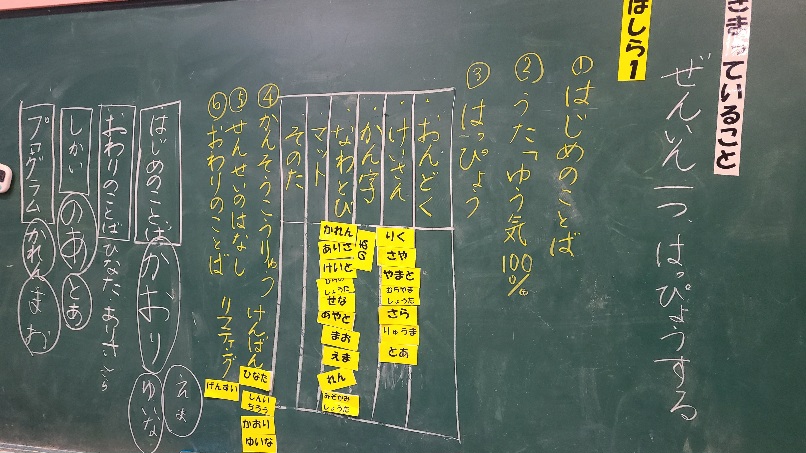 きまっていること
はしら1
ぜんいん一つ、はっぴょうする
①はじめのことば
②うた「ゆう気100%
③はっぴょう
・おんどく
・けいさん
りく
さや
やまと
しょうた
さら
りゅうま
とあ
・かん字
・なわとび
かれん
ありさ
けいと
しょうた
せな
あやと
まお
えま
れん
しょうた
・マット
・そのた
④かんそうこうりゅう
けんばん
ひなた
しんいちろう
かおり
ゆいな
⑤せんせいのはなし
リフティング
げんすい
⑥おわりのことば
はじめのことば かおり ゆいな
おわりのことば ひなた・ありさ
しかい のあ とあ
プログラム かれん まお